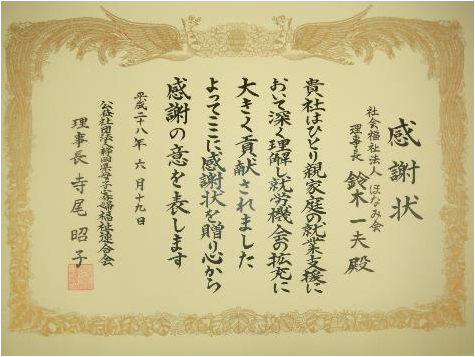 感謝状
社会福祉法人 ほなみ会
理事長 鈴木一夫殿
貴社はひとり親家庭の就業支援に
おいて深く理解し就労機会の拡充に
大きく貢献されました
よってここに感謝状を贈り心から
感謝の意を表します
平成二十八年六月十九日
公益社団法人静岡県母子寡婦福祉連合会
理事長 寺尾昭子